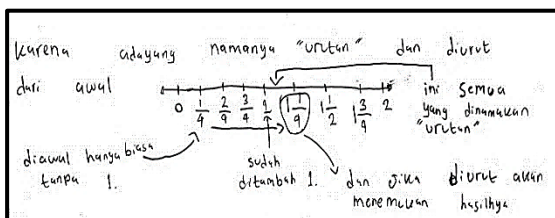 karena adayang namanya "urutan" dan diurut
dari awal
0 1/4 2/4 3/4 1/1 1 1/4 1 1/2 1 3/4 2
ini semua
yang dinamakan
"urutan"
diawal hanya biasa
tanpa 1.
sudah
ditambah 1.
dan jika diurut akan
menemukan hasilnya